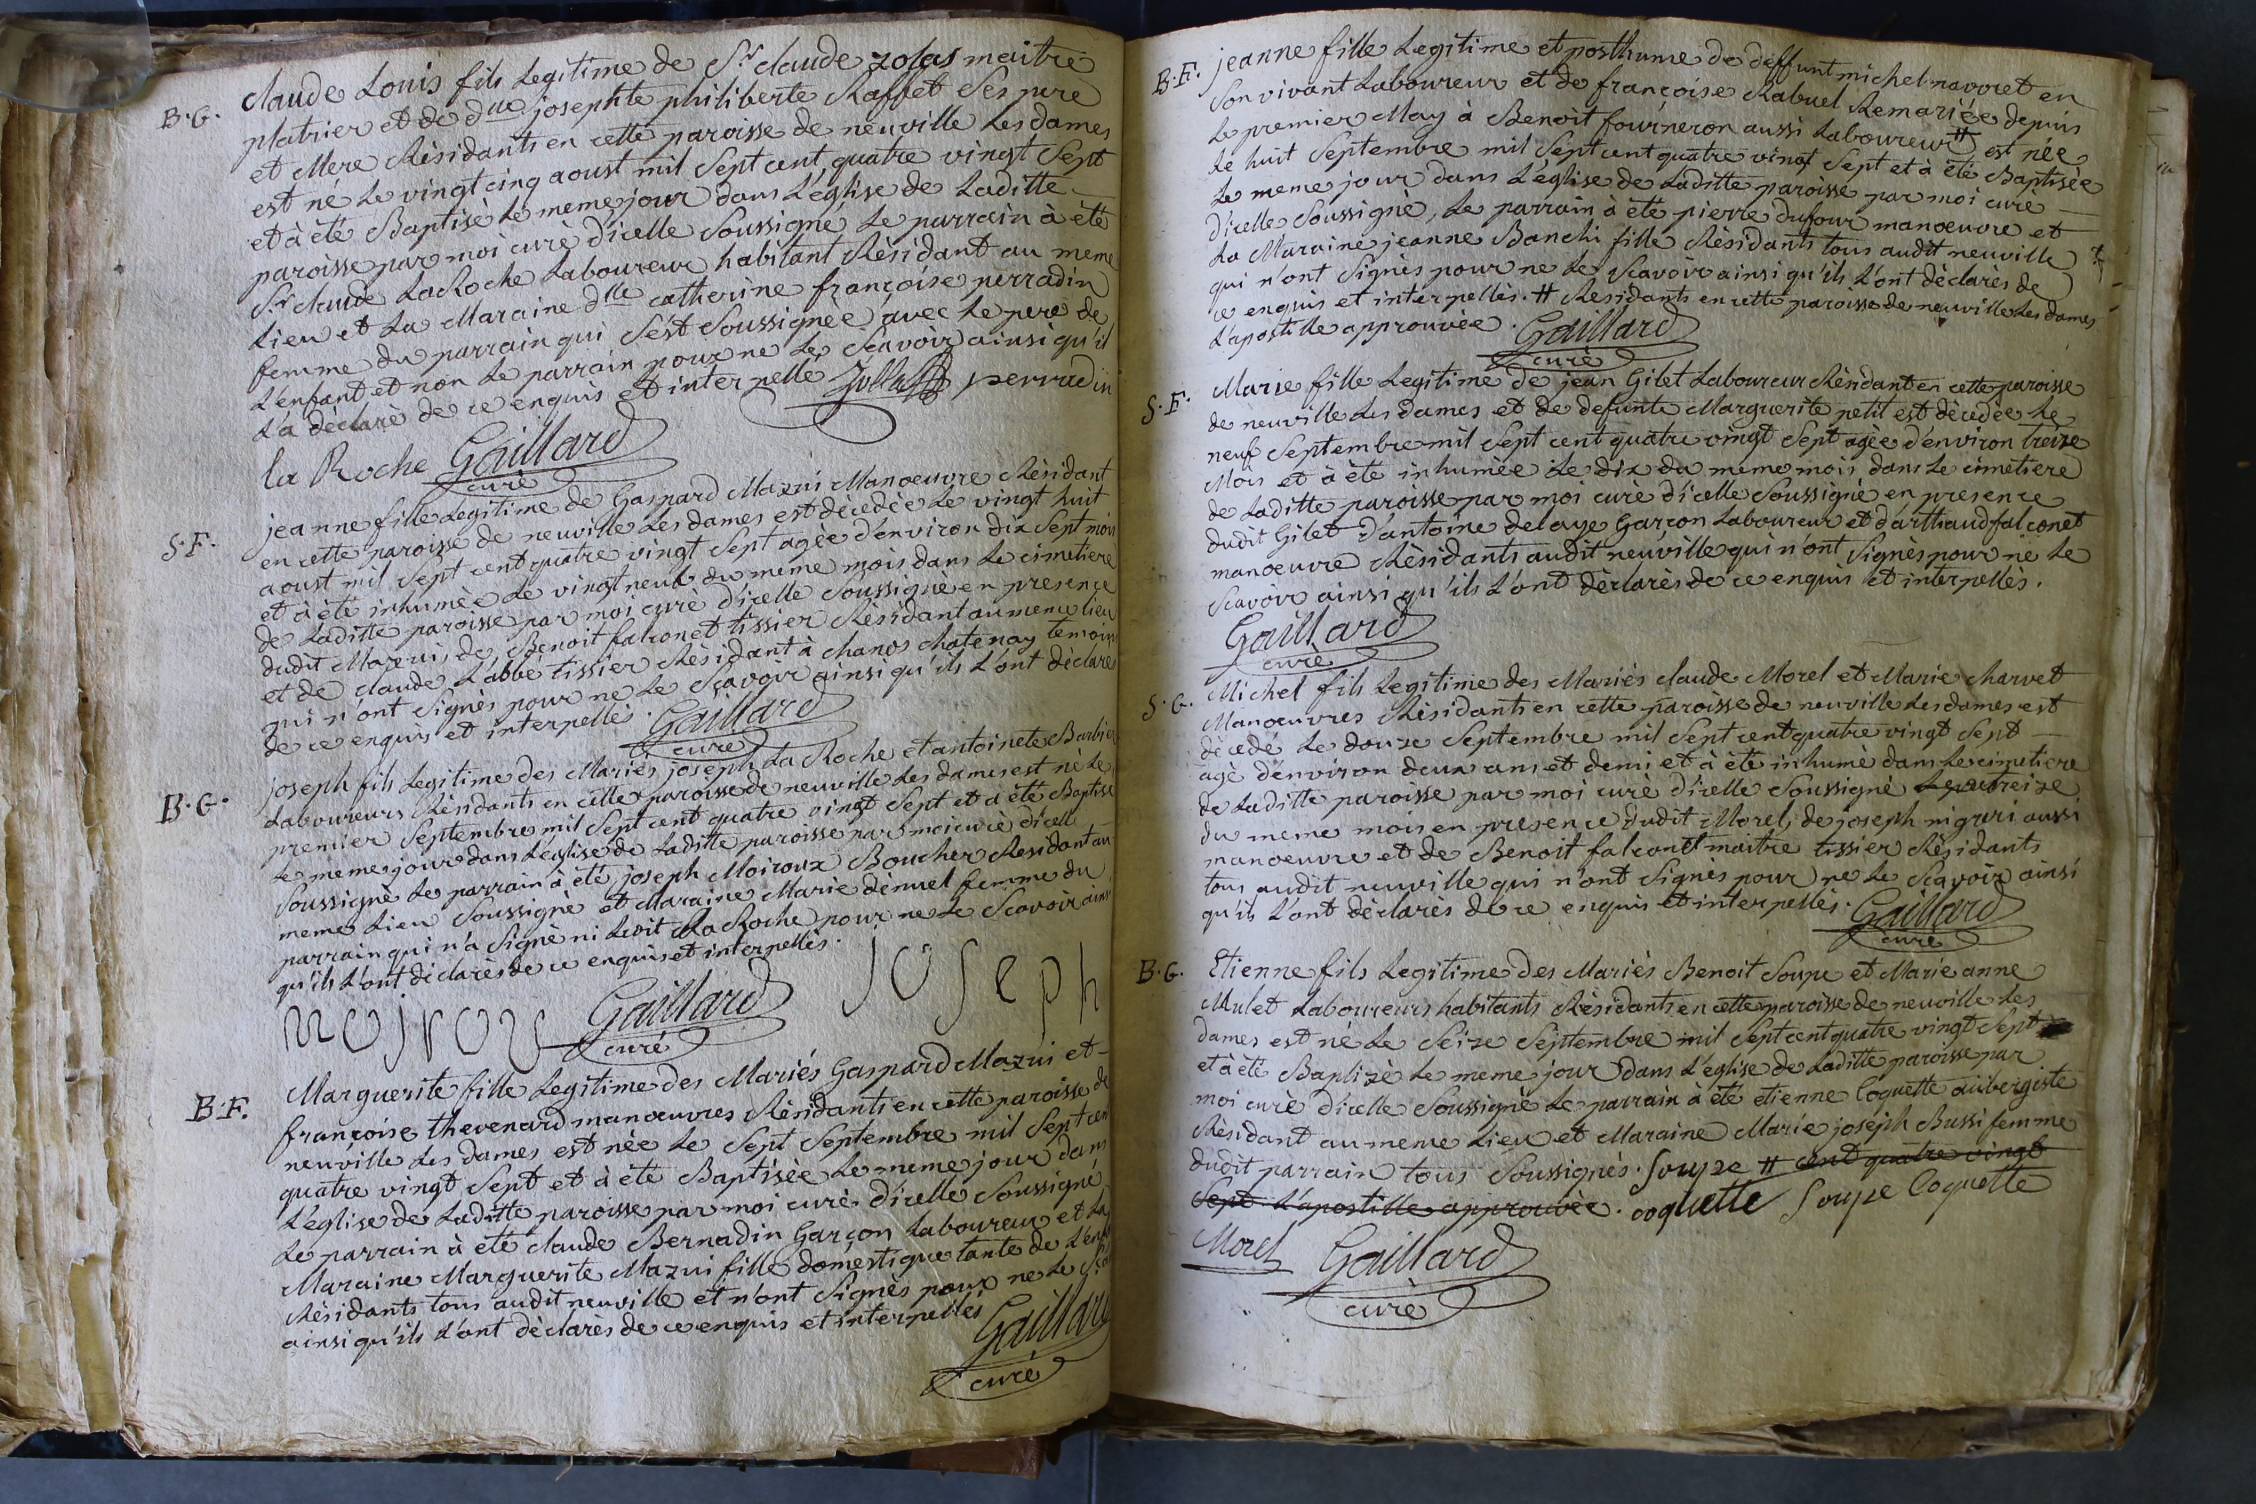 B.G. Claude Louis fils Legitime de Sr claude zolas maitre
platrier et de dlle josephte philiberte Raffet Ses pere
et Mere Rèsidants en cette paroisse de neuville Les dames
est né Le vingt cinq aoust mil Sept cent quatre vingt Sept
et à été Baptisè Le meme jour dans L'èglise de Laditte
paroisse par moi curè d'icelle Soussigné Le parrain à été
Sr claude LaRoche Laboureur habitant Rèsidant au meme
Lieu et La Maraine dlle catherine françoise perradin
femme du parrain qui S'est Soussignée avec Le pere de
L'enfant et non Le parrain pour ne Le Scavoir ainsi qu'il
L'a dèclarè de ce enquis et interpellé Zollas perradin
la Roche Gaillard
curè
S.F. jeanne fille Legitime de Gaspard Mazui Manoeuvre Rèsidant
en cette paroisse de neuville Les dames est dècedèe Le vingt huit
aoust mil Sept cent quatre vingt Sept agèe d'environ dix Sept mois
et à été inhumèe Le vingt neuf du meme mois dans Le cimetiere
de Laditte paroisse par moi curè d'icelle Soussignè en presence
dudit Mazui, de Benoit falconet tissier Rèsidant au meme lieu
et de claude L'abbé tissier Rèsidant à chanos chatenay temoins
qui n'ont Signès pour ne Le Sçavoir ainsi qu'ils L'ont dèclarés
de ce enquis et interpellés. Gaillard
curè
B.G. joseph fils Legitime des Mariés joseph La Roche et antoinete Barbier
Laboureurs Rèsidants en cette paroisse de neuville Les dames est nè Le
premier Septembre mil Sept cent quatre vingt Sept et à été Baptisé
Le meme jour dans L'èglise de Laditte paroisse par moi curè d'icelle
Soussignè Le parrain à été joseph Moiroux Boucher Residant au
meme Lieu Soussignè et Maraine Marie dènuel femme du
parrain qui n'a Signè ni Ledit La Roche pour ne Le Scavoir ainsi
qu'ils L'ont dèclarès de ce enquis et interpellès.
joseph
moirou Gaillard
curé
B.F. Marguerite fille Legitime des Mariés Gaspard Mazui et
françoise thevenard manoeuvres Rèsidants en cette paroisse de
neuville Les dames est née Le Sept Septembre mil Sept cent
quatre vingt Sept et à été Baptisèe Le meme jour dans
L'eglise de Laditte paroisse par moi curè d'icelle Soussigné
Le parrain à eté claude Bernadin Garçon Laboureur et La
Maraine Marguerite Mazui fille domestique tante de L'enft
Rèsidants tous audit neuville et n'ont Signès pour ne Le
ainsi qu'ils L'ont dèclarès de ce enquis et interpellés Gaillard
curè
B.F. jeanne fille Legitime et posthume de deffunt michel navoret en
Son vivant Laboureur et de françoise Rabuel Remariée depuis
Le premier May à Benoit fourneron aussi Laboureur # est née
Le huit Septembre mil Sept cent quatre vingt Sept et à été Baptisèe
Le meme jour dans L'èglise de Laditte paroisse par moi curè
d'icelle Soussignè, Le parrain à été pierre dufour manoeuvre et
La Maraine jeanne Banchi fille Rèsidants tous audit neuville
qui n'ont Signès pour ne Le Scavoir ainsi qu'ils L'ont dèclarès de
ce enquis et interpellès. # Residants en cette paroisse de neuville Les dames
L'apostille approuvèe. Gaillard
curè
S.F. Marie fille Legitime de jean Gilet Laboureur Rèsidant en cette paroisse
de neuville Les dames et de defunte Marguerite petit est dècedèe Le
neuf Septembre mil Sept cent quatre vingt Sept agèe d'environ treize
Mois et à ète inhumèe Le dix du meme mois dans Le cimetiere
de Laditte paroisse par moi curè d'icelle Soussignè en presence
dudit Gilet d'antoine delaye Garçon Laboureur et d'arthaud falconet
manoeuvre Rèsidants audit neuville qui n'ont Signès pour ne Le
Scavoir ainsi qu'ils L'ont dèclarès de ce enquis et interpellès.
Gaillard
curè
S.G. Michel fils Legitime des Mariès claude Morel et Marie charvet
Manoeuvres Rèsidants en cette paroisse de neuville Les dames est
dècedé Le douze Septembre mil Sept cent quatre vingt Sept
agè d'environ deux ans et demi et à été inhumè dans Le cimetiere
de Laditte paroisse par moi curè d'icelle Soussignè Le treize
du meme mois en presence dudit Morel, de joseph nigri aussi
manoeuvre et de Benoit falconet maitre tissier Rèsidants
tous audit neuville qui n'ont Signès pour ne Le Scavoir ainsi
qu'ils L'ont dèclarès de ce enquis et interpellès. Gaillard
curè
B.G. Etienne fils Legitime des Mariès Benoit Soupe et Marie anne
Mulet Laboureurs habitants Rèsidants en cette paroisse de neuville Les
dames est né Le Seize Septembre mil Sept cent quatre vingt Sept
et à été Baptizè Le meme jour dans L'èglise de Laditte paroisse par
moi curè d'icelle Soussigné Le parrain à été etienne Coquette aubergiste
Rèsidant au meme Lieu et Maraine Marie joseph Bussi femme
dudit parrain tous Soussignès. Soupe # cent quatre vingt
Sept L'apostille approuvèe. coquette Soupe Coquette
Morel Gaillard
curè